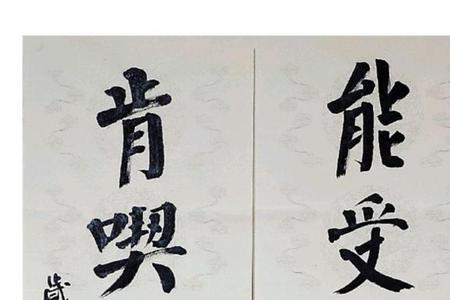 能受
肯喫
歲